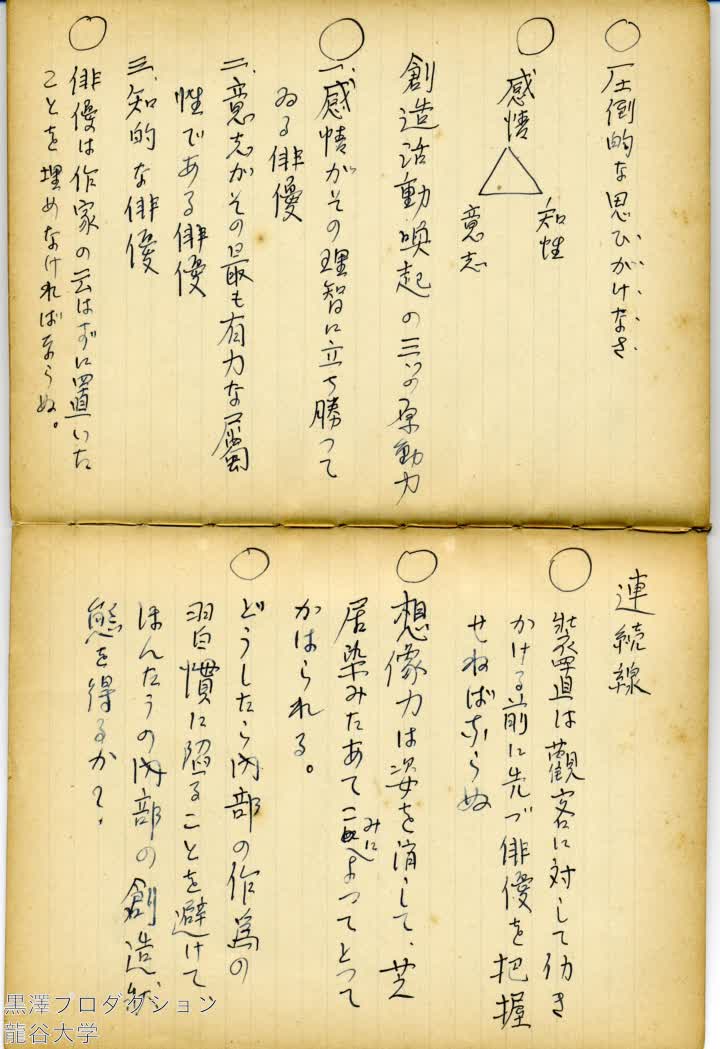 ○ 圧倒的な思ひがけなさ
○ 感情 知性 意志
創造活動喚起の三つの原動力
○ 一、感情がその理智に立ち勝つて
ゐる俳優
二、意志がその最も有力な属
性である俳優
三、知的な俳優
○ 俳優は作家の云はずに置いた
ことを埋めなければならぬ。
連続線
○ 装置は観客に対して仂き
かける前に先づ俳優を把握
せねばならぬ
○ 想像力は姿を消して、芝
居染みたあてこみに よつてとつて
かはられる。
○ どうしたら内部の作為の
習慣に陥ることを避けて
ほんたうの内部の創造状
態を得るか?
黒澤プロダクション
龍谷大学